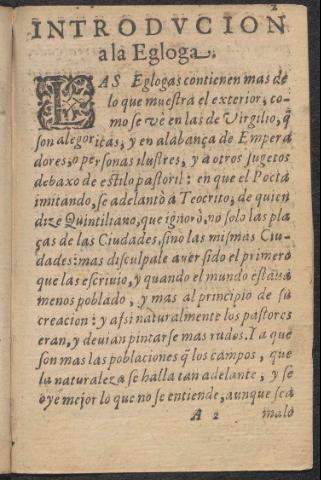 2
INTRODVCION
a la Egloga.
LAS Eglogas contienen mas de
lo que muestra el exterior, co-
mo se vè en las de Virgilio, q̃
son alegoricas, y en alabança de Empera
dores, o personas ilustres, y a otros sugetos
debaxo de estilo pastoril: en que el Poeta
imitando, se adelantò a Teocrito, de quien
dize Quintiliano, que ignorò, no solo las pla
ças de las Ciudades, sino las mismas Ciu-
dades: mas disculpale auer sido el primero
que las escriuio, y quando el mundo estaua
menos poblado, y mas al principio de su
creacion: y assi naturalmente los pastores
eran, y deuian pintarse mas rudos. Ya que
son mas las poblaciones q̃ los campos, que
la naturaleza se halla tan adelante, y se
oye mejor lo que no se entiende, aunque sea
A 2 malo